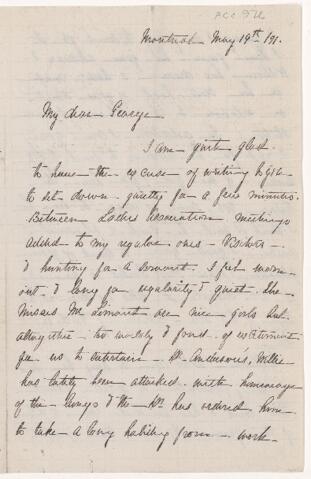 Montreal May 19th /91.
My dear George
I am quite glad
to have the excuse of writing to you
to sit down quietly for a few minutes.
Between Ladies Association meetings
added to my regular ones - Visitors -
& hunting for a servant. I feel worn
out. & long for regularity & quiet. The
Misses are nice girls but
altogether too worldly & fond of excitement
for us to entertain - Willie
has lately been attacked with hemorrhage
of the lungs & the Dr. has ordered him
to take a long holiday from work